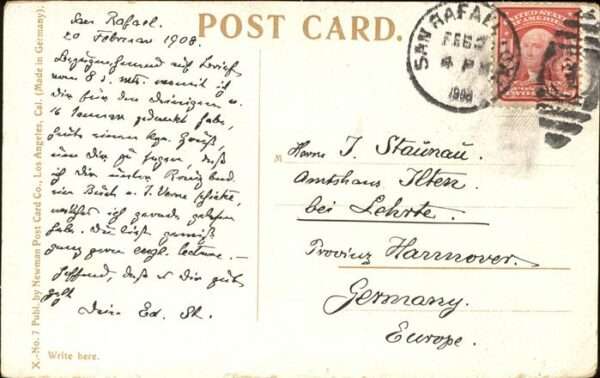 POST CARD.
San Rafael.
20 Februar 1908.
Bezugnehmend auf Bericht
vom 8 d. Mts. womit ich
Dir für den Deinigen
16 Januar gedankt habe,
heute einen kzn. Gruß,
um Dir zu sagen, daß
ich Dir unter
ein Buch v. J. Verne schicke,
welches ich gerade gelesen
habe. Du liest gewiß
ganz gern engl. lecture. —
Hoffend, daß es Dir gut
geht
Dein Ed. St.
SAN RAFAEL
FEB
4 PM
1908
UNITED STATES
OF AMERICA
Herrn J. Staunau.
Amtshaus Ilten.
bei Lehrte.
Provinz Hannover.
Germany.
Europe.
X.—No. 7 Publ. by Newman Post Card Co., Los Angeles, Cal. (Made in Germany).
Write here.